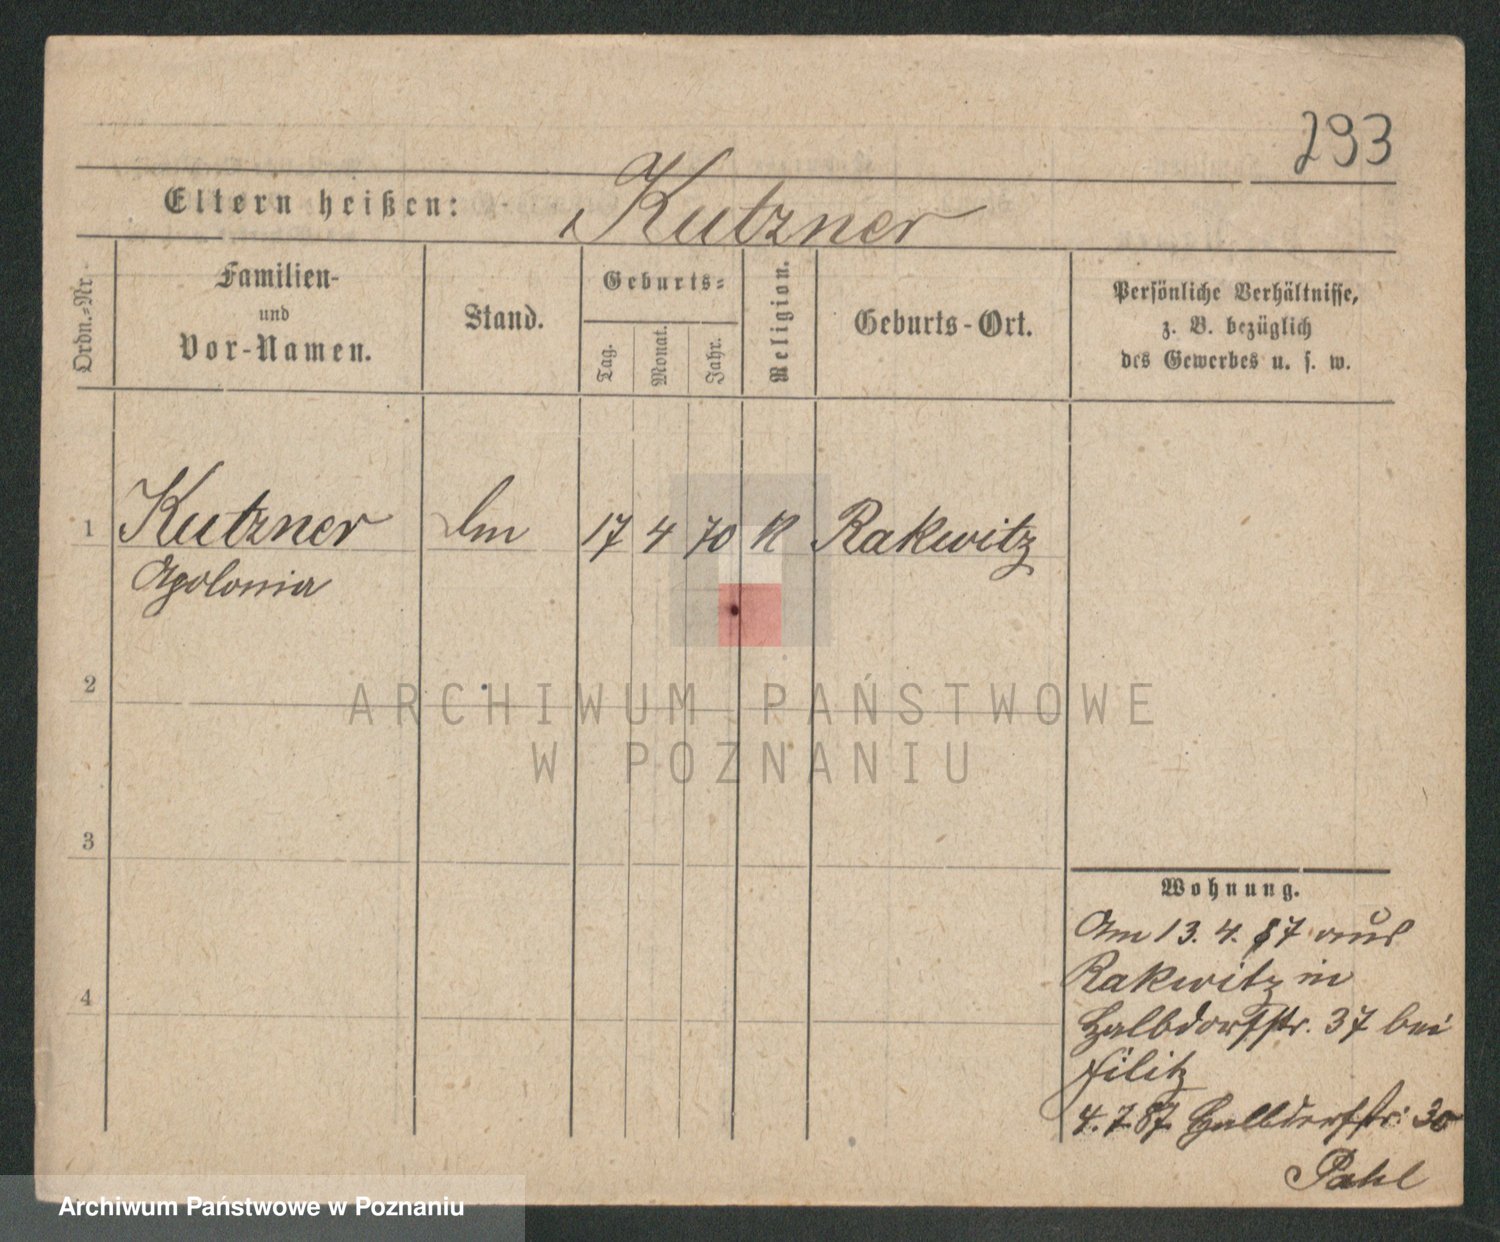 293
Eltern heißen: Kutzner
Ordn.-Nr.
Familien-
und
Vor-Namen.
Stand.
Geburts-
Tag.
Monat.
Jahr.
Religion.
Geburts-Ort.
Persönliche Verhältnisse,
z. B. bezüglich
des Gewerbes u. s. w.
1 Kutzner 17 4 70 K Rakwitz
Apolonia
2
3
4
ARCHIWUM PAŃSTWOWE
W POZNANIU
Wohnung.
Am 13. 4. 87 aus
Rakwitz in
Halbdorfstr. 37 bei
Filitz
4. 7. 87. Halbdorfstr: 30
Pahl
Archiwum Państwowe w Poznaniu